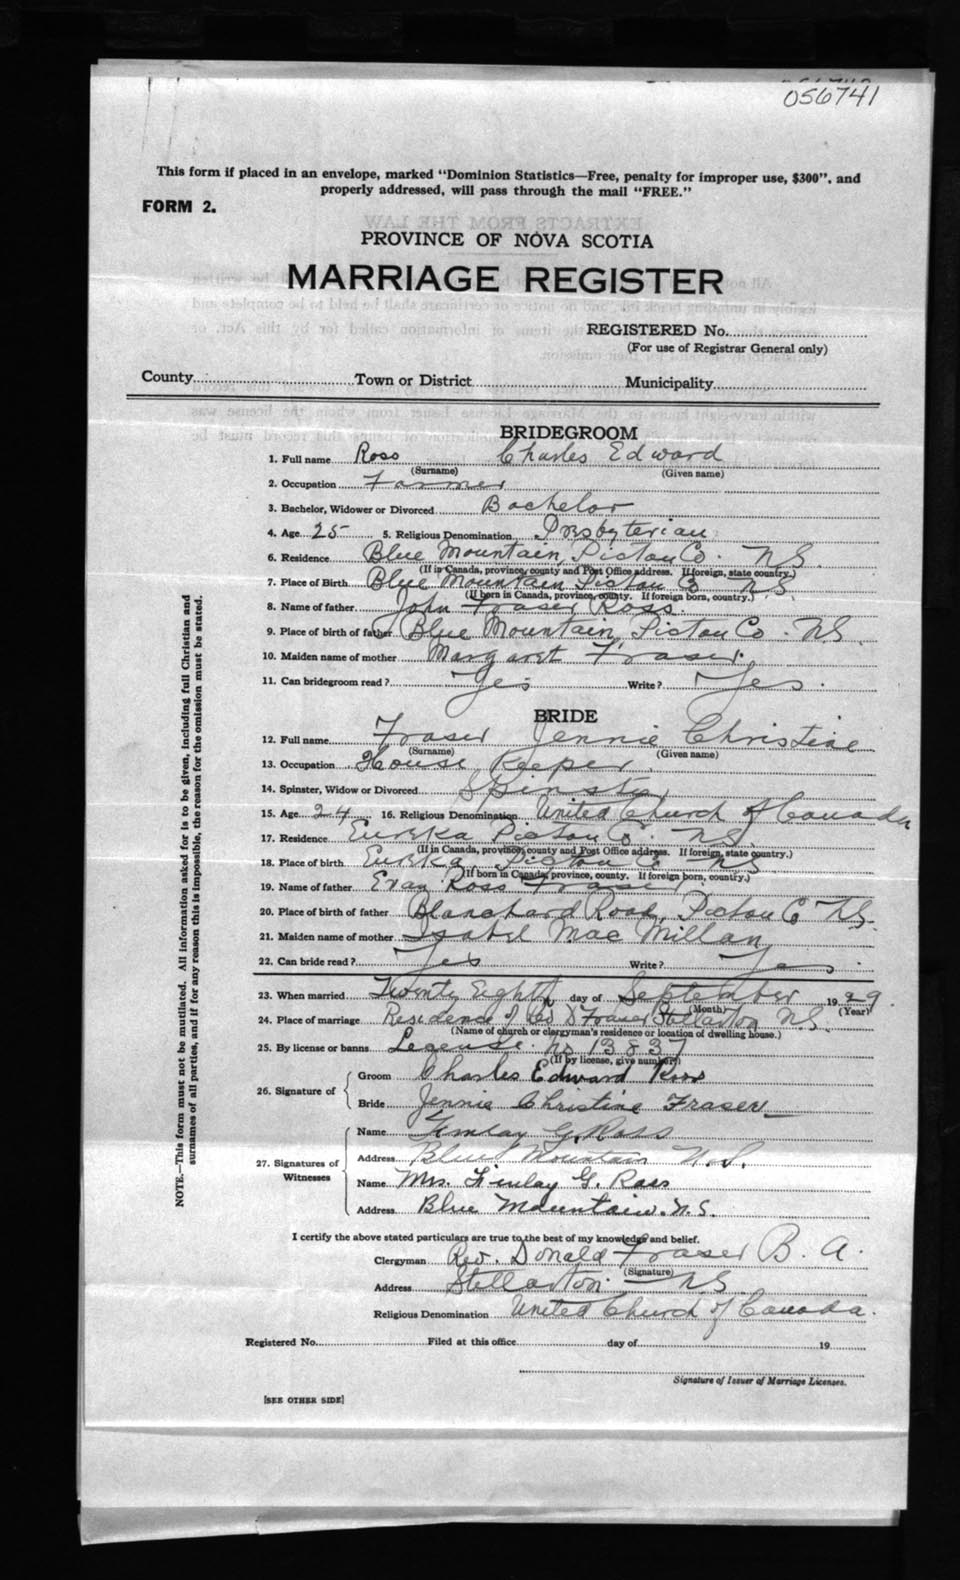 056741
This form if placed in an envelope, marked "Dominion Statistics—Free, penalty for improper use, $300", and
properly addressed, will pass through the mail "FREE."
FORM 2.
PROVINCE OF NOVA SCOTIA
MARRIAGE REGISTER
REGISTERED No.
(For use of Registrar General only)
County Town or District Municipality
BRIDEGROOM
1. Full name Ross Charles Edward
(Surname) (Given name)
2. Occupation Farmer
3. Bachelor, Widower or Divorced Bachelor
4. Age 25 5. Religious Denomination Presbyterian
6. Residence Blue Mountain, Pictou Co. NS.
(If in Canada, province, county and Post Office address. If foreign, state country.)
7. Place of Birth Blue Mountain Pictou Co NS
(If born in Canada, province, county. If foreign born, country.)
8. Name of father John Fraser Ross.
9. Place of birth of father Blue Mountain, Pictou Co. NS.
10. Maiden name of mother Margaret Fraser.
11. Can bridegroom read? Yes Write? Yes.
BRIDE
12. Full name Fraser Jennie Christine
(Surname) (Given name)
13. Occupation House Keeper.
14. Spinster, Widow or Divorced Spinster
15. Age 24 16. Religious Denomination United Church of Canada
17. Residence Eureka Pictou Co. NS.
(If in Canada, province, county and Post Office address. If foreign, state country.)
18. Place of birth Eureka, Pictou Co NS
(If born in Canada, province, county. If foreign born, country.)
19. Name of father Evan Ross Fraser.
20. Place of birth of father Blanchard Road, Pictou Co NS.
21. Maiden name of mother Isabel MacMillan
22. Can bride read? Yes Write? Yes.
23. When married Twenty Eighth day of September 1929
(Month) (Year)
24. Place of marriage Residence of Rev D Fraser Stellarton N.S.
(Name of church or clergyman's residence or location of dwelling house.)
25. By license or banns Legense. No 13837
(If by license, give number)
26. Signature of Groom Charles Edward Ross
Bride Jennie Christine Fraser
27. Signatures of Witnesses Name Finlay G. Ross
Address Blue Mountain N.S.
Name Mrs. Finlay G. Ross
Address Blue Mountain. N.S.
I certify the above stated particulars are true to the best of my knowledge and belief.
Clergyman Rev. Donald Fraser B. A.
(Signature)
Address Stellarton. NS
Religious Denomination United Church of Canada.
Registered No. Filed at this office day of 19
Signature of Issuer of Marriage Licenses.
[SEE OTHER SIDE]
NOTE.—This form must not be mutilated. All information asked for is to be given, including full Christian and
surnames of all parties, and if for any reason this is impossible, the reason for the omission must be stated.